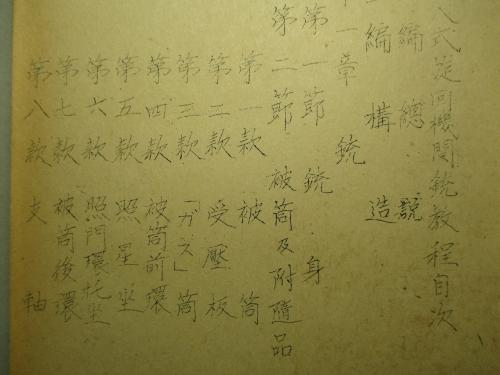 八式旋回機関銃教程目次
編 總説
編 構造
一章 銃
第一節 銃身
第二節 被筒及附隨品
第一款 被筒
第二款 受壓板
第三款 「ガス」筒
第四款 被筒前環
第五款 照星坐
第六款 照門環托坐
第七款 被筒後環
第八款 支軸